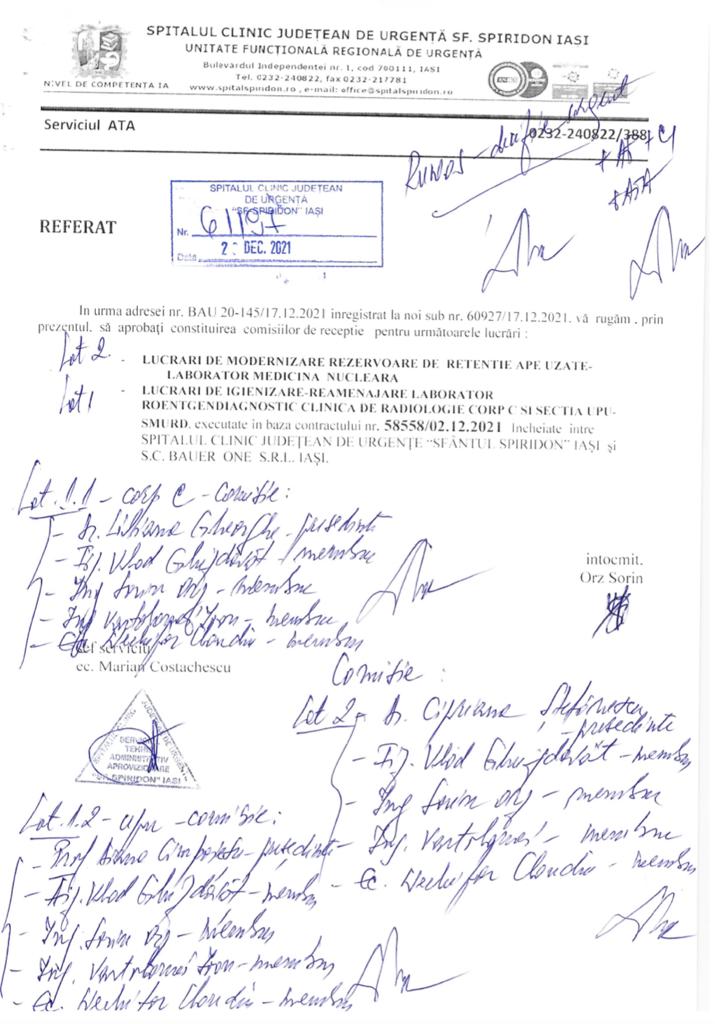 SPITALUL CLINIC JUDEȚEAN DE URGENȚĂ SF. SPIRIDON IASI
UNITATE FUNCȚIONALĂ REGIONALĂ DE URGENȚĂ
Bulevardul Independentei nr. 1, cod 700111, IASI
Tel. 0232-240822, fax 0232-217781
www.spitalspiridon.ro , e-mail: office@spitalspiridon.ro
NIVEL DE COMPETENTA IA
Serviciul ATA
0232-240822/388
urgent
+ ATA
REFERAT
SPITALUL CLINIC JUDEȚEAN
DE URGENȚĂ
"SF. SPIRIDON" IAȘI
Nr. 61197
Data 2 DEC. 2021
In urma adresei nr. BAU 20-145/17.12.2021 inregistrat la noi sub nr. 60927/17.12.2021, vă rugăm , prin
prezentul, să aprobați constituirea comisiilor de receptie pentru următoarele lucrări :
Lot 2. - LUCRARI DE MODERNIZARE REZERVOARE DE RETENTIE APE UZATE-
LABORATOR MEDICINA NUCLEARA
Lot 1 - LUCRARI DE IGIENIZARE-REAMENAJARE LABORATOR
ROENTGENDIAGNOSTIC CLINICA DE RADIOLOGIE CORP C SI SECTIA UPU-
SMURD, executate in baza contractului nr. 58558/02.12.2021 încheiate intre
SPITALUL CLINIC JUDEȚEAN DE URGENȚE "SFÂNTUL SPIRIDON" IAȘI și
S.C. BAUER ONE S.R.L. IAȘI.
Lot 1.1 - corp C - Comisie :
- Dr. Liliana Gheorghe - presedinte
- Vlad - membru
- Ing Sorin Orz - membru
- Ing Ion - membru
- Ec. Claudiu - membru
intocmit.
Orz Sorin
Sef serviciu
ec. Marian Costachescu
SERVICIUL
TEHNIC
ADMINISTRATIV
APROVIZIONARE
"SF. SPIRIDON" IASI
Comisie :
Lot 2 - Dr. Cipriana Stefanescu
- presedinte
- Vlad - membru
- Ing Sorin Orz - membru
- Ing. - membru
- Ec. Claudiu - membru
Lot 1.2 - upu - comisie :
- Prof Diana Cimpoesu - presedinte
- Vlad - membru
- Ing. Sorin Orz - membru
- Ing. Ion - membru
- Ec. Claudiu - membru